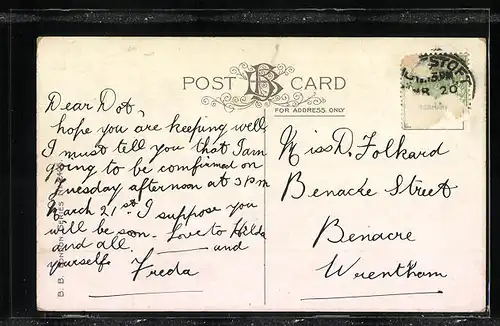 POST CARD
FOR ADDRESS ONLY
Dear Dot,
hope you are keeping well,
I must tell you that I am
going to be comfirmed on
Tuesday afternoon at 3 pm
March 21st. I suppose you
will be soon. Love to Hilda
and all. and
yourself. Freda
Miss D. Folkard
Benacre Street
Benacre
Wrentham